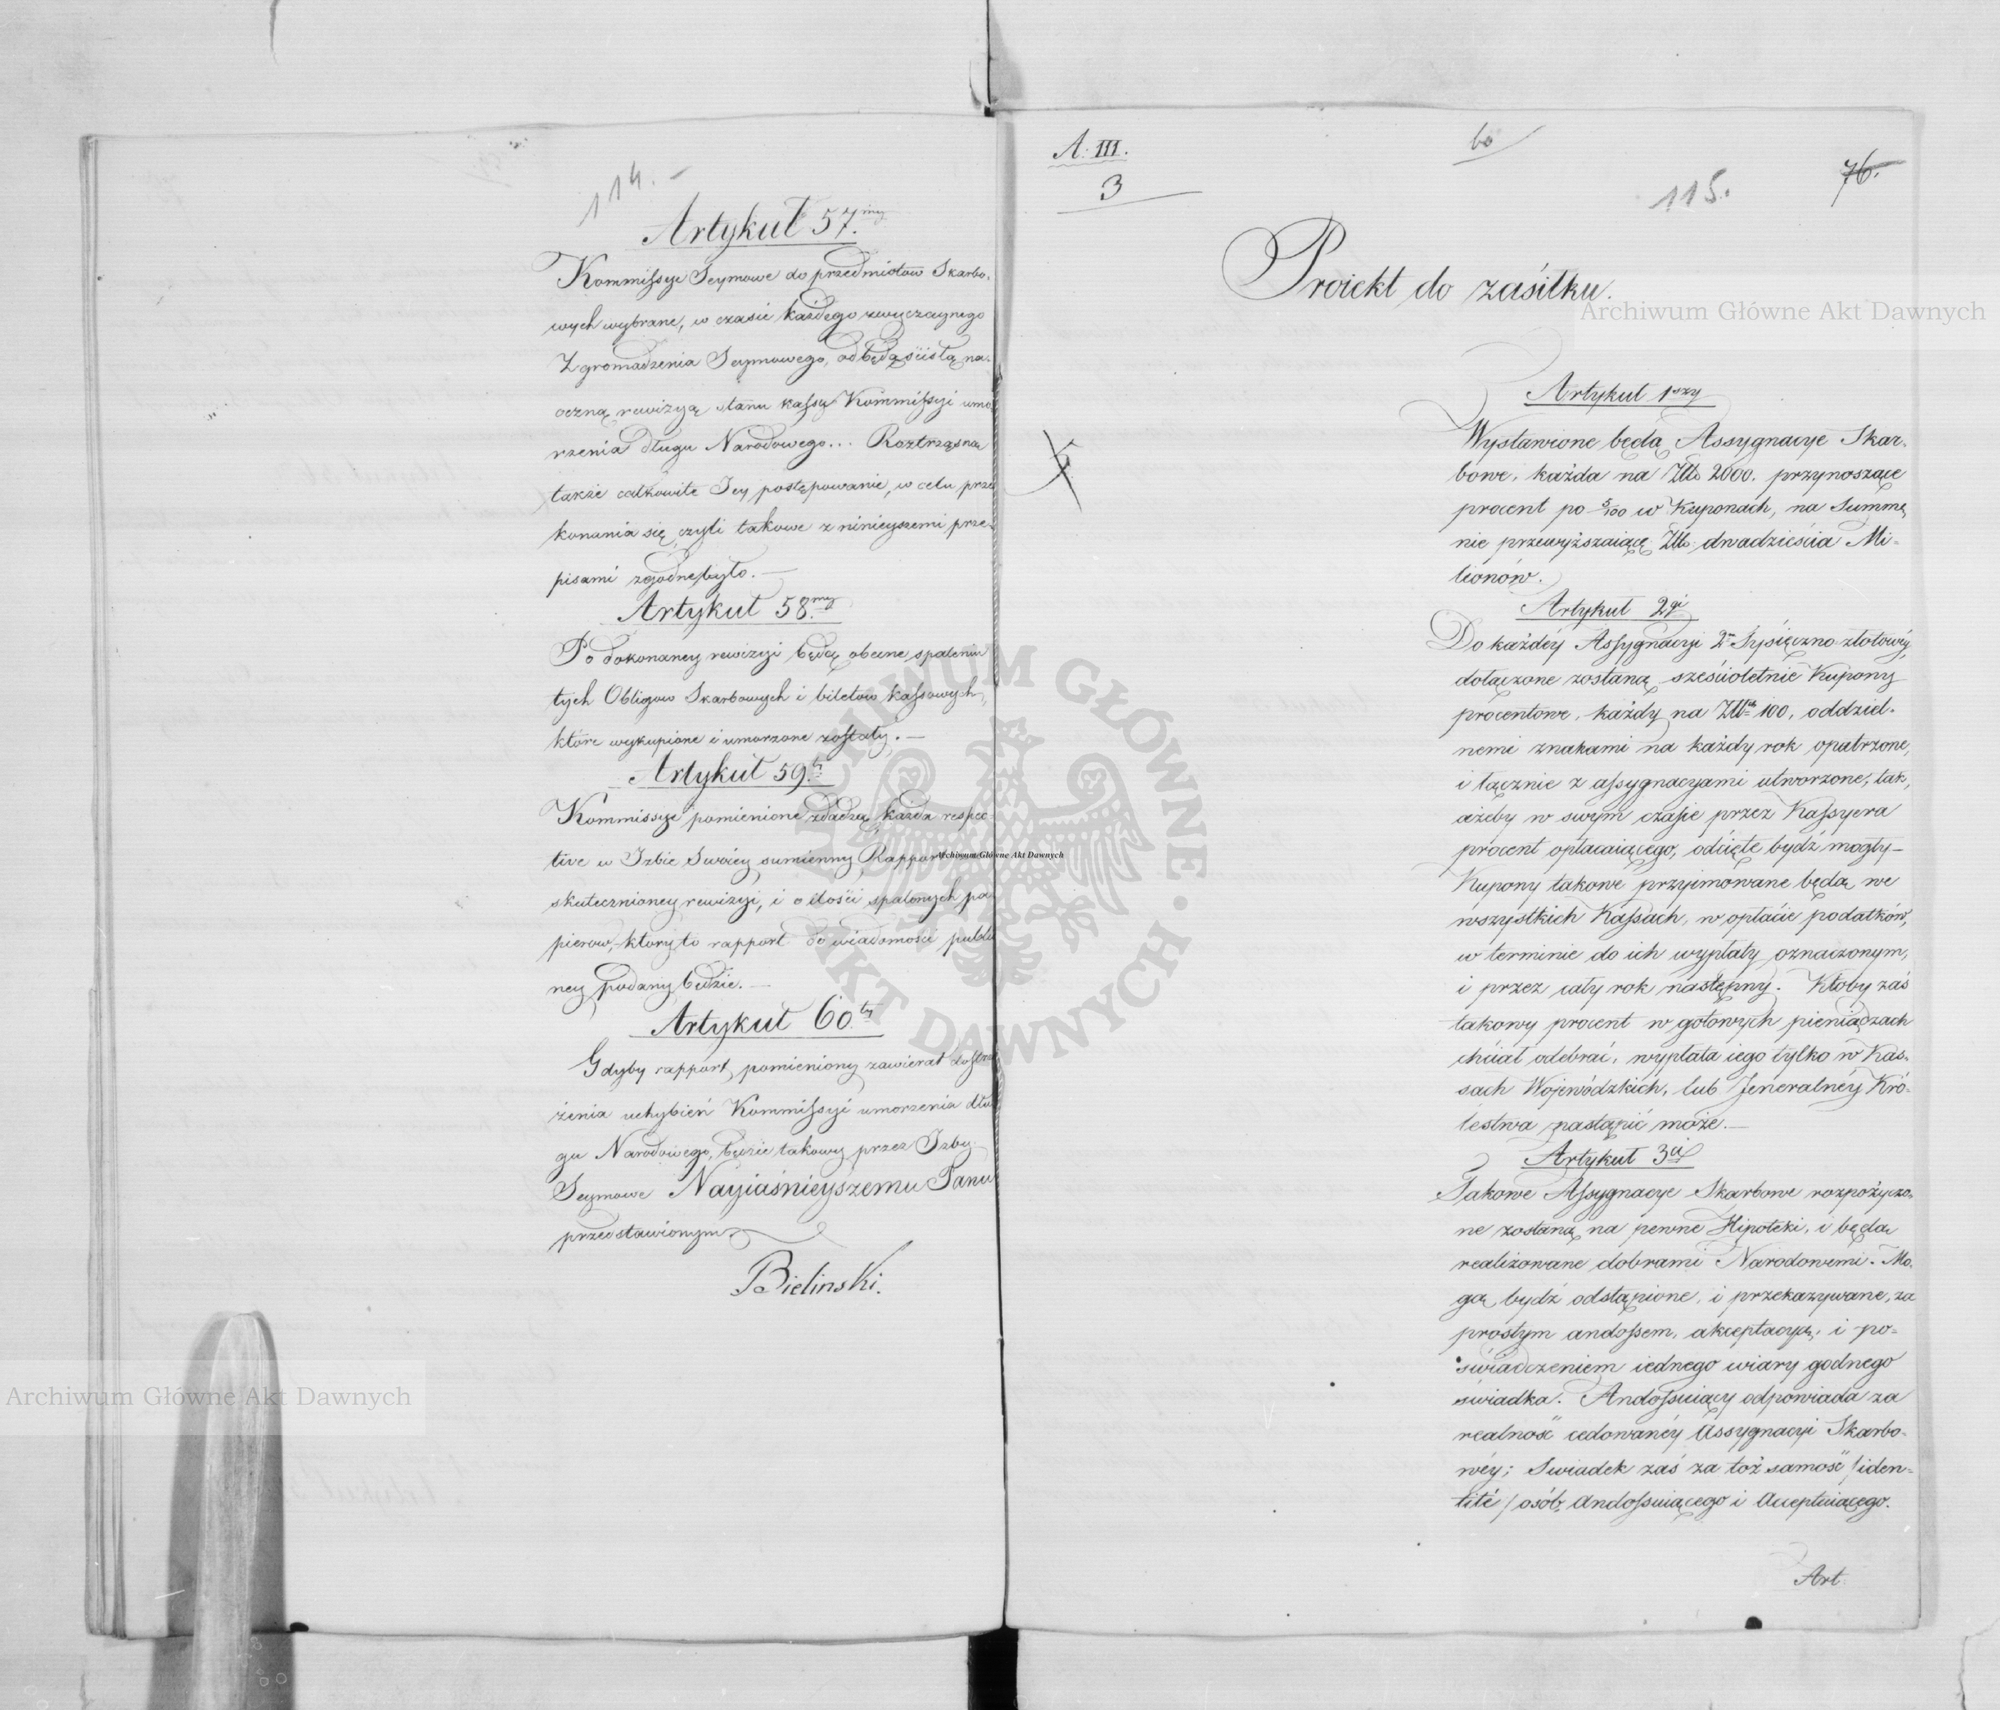 114.
Artykuł 57.my
Kommissye Seymowe do przedmiotow Skarbo-
wych wybrane, w czasie każdego zwyczaynego
Zgromadzenia Seymowego, odbędą ścisłą na-
oczną rewizyą stanu kassy Kommissyi umo
rzenia długu Narodowego... Roztrząsną
także całkowite Jey postępowanie, w celu prze
konania się, czyli takowe z ninieyszemi prze-
pisami zgodne było. —
Artykuł 58.my
Po dokonaney rewizyi będą obecne spaleniu
tych Obligow Skarbowych i biletow kassowych,
ktore wykupione i umorzone zostały. —
Artykuł 59.ty
Kommissye pomienione zdadzą każda respec-
tive w Izbie Swoiey sumienny Rapport
skutecznioney rewizyi, i o ilości spalonych pa-
pierow, ktory to rapport do wiadomości publi
ney podany będzie. —
Artykuł 60.ty
Gdyby rapport pomieniony zawierał dostrze
żenia uchybień Kommissyi umorzenia dłu
gu Narodowego, będzie takowy przez Izby
Seymowe Nayiaśnieyszemu Panu
przedstawionym
Bielinski.
A. III.
3
60
115.
76.
Proiekt do zasiłku.
Artykuł 1szy
Wystawione będą Assygnacye Skar-
bowe, każda na Złt. 2000. przynoszące
procent po 5/100 w Kuponach, na Summę
nie przewyższaiącą Złt. dwadzieścia Mi-
lionów.
Artykuł 2gi
Do każdéy Assygnacyi 2u Tysięczno złotowéy,
dołączone zostaną sześcioletnie Kupony
procentowe, każdy na Złt. 100, oddziel-
nemi znakami na każdy rok opatrzone,
i łącznie z assygnacyami utworzone, tak,
ażeby w swym czasie przez Kassyera
procent opłacaiącego, odcięte bydź mogły —
Kupony takowe przyimowane będą we
wszystkich Kassach, w opłacie podatków,
w terminie do ich wypłaty oznaczonym,
i przez cały rok następny. Ktoby zaś
takowy procent w gotowych pieniądzach
chciał odebrać, wypłata iego tylko w Kas-
sach Wojewódzkich, lub Jeneralnéy Kró-
lestwa nastąpić może. —
Artykuł 3ci
Takowe Assygnacye Skarbowe rozpożyczo-
ne zostaną na pewne Hipoteki, i będą
realizowane dobrami Narodowemi. Mo-
gą bydź odstąpione, i przekazywane, za
prostym andossem, akceptacyą, i po-
świadczeniem iednego wiary godnego
świadka. Andossuiący odpowiada za
realność cedowanéy Assygnacyi Skarbo-
wéy; Swiadek zaś za toż samość /iden-
tité/ osób, Andossuiącego i Acceptuiącego.
Art
Archiwum Główne Akt Dawnych
Archiwum Główne Akt Dawnych
Archiwum Główne Akt Dawnych
ARCHIWUM GŁÓWNE · AKT DAWNYCH ·